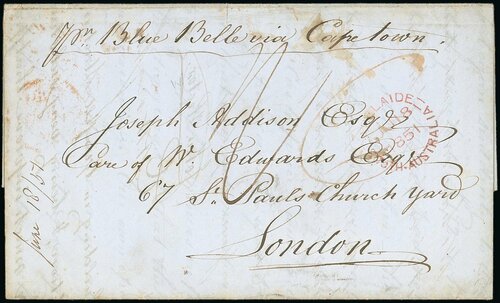 pr Blue Belle via Cape town.
1/6
Joseph Addison Esqr.
Care of W. Edwards Esqr.
67 St. Pauls Church Yard
London
June 18/51
ADELAIDE
SOUTH.AUSTRALIA